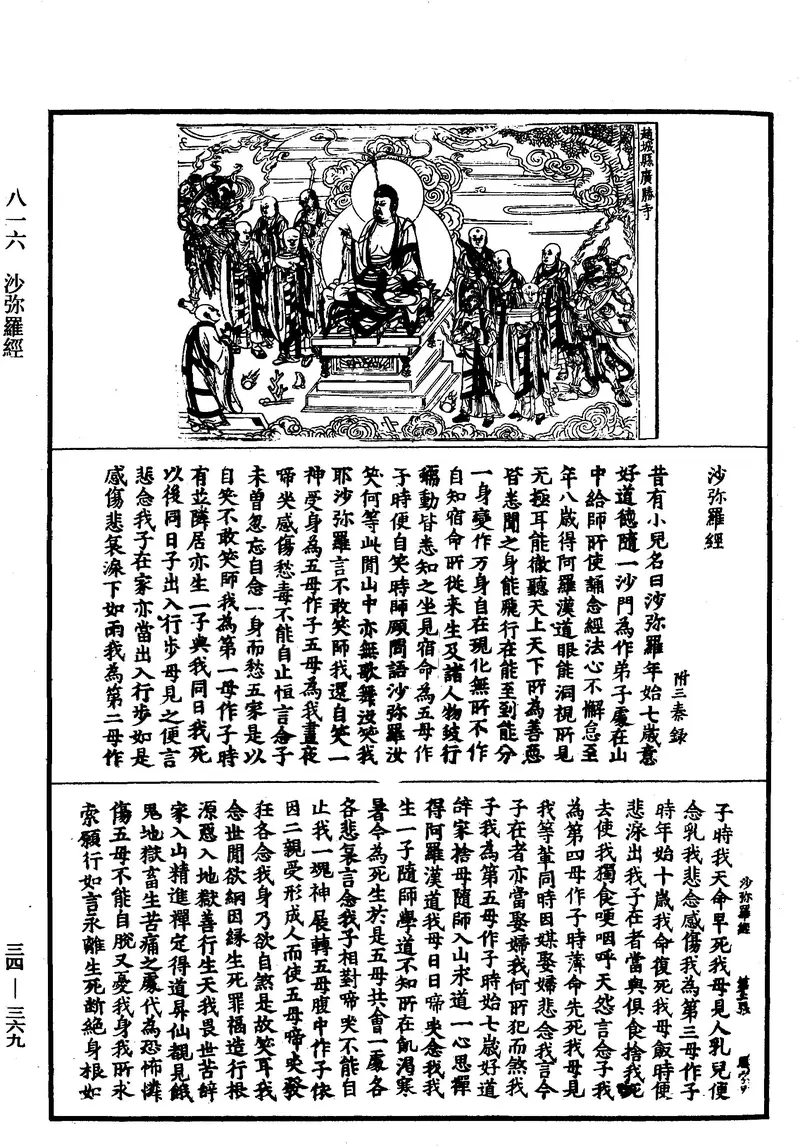 趙城縣廣勝寺
八一六 沙弥羅經
沙弥羅經
附三秦録
昔有小兒名曰沙弥羅年始七歲意
好道德隨一沙門為作弟子處在山
中給師所使誦念經法心不懈怠至
年八歲得阿羅漢道眼能洞視所見
无極耳能徹聽天上天下所為善惡
皆悉聞之身能飛行在能至到能分
一身變作万身自在現化無所不作
自知宿命所從来生及諸人物蚑行
蠕動皆悉知之坐見宿命為五母作
子時便自笑時師顧問語沙弥羅汝
笑何等此間山中亦無歌舞汝笑我
耶沙弥羅言不敢笑師我還自笑一
神受身為五母作子五母為我晝夜
啼哭感傷愁毒不能自止恒言念子
未曾忽忘自念一身而愁五家是以
自笑不敢笑師我為第一母作子時
有並隣居亦生一子與我同日我死
以後同日子出入行步母見之便言
悲念我子在家亦當出入行步如是
感傷悲哀淚下如雨我為第二母作
沙弥羅經
子時我夭命早死我母見人乳兒便
念乳我悲念感傷我為第三母作子
時年始十歲我命復死我母飯時便
悲淚出我子在者當與俱食捨我死
去使我獨食哽咽呼天怨言念子我
為第四母作子時薄命先死我母見
我等輩同時因媒娶婦悲念我言今
子在者亦當娶婦我何所犯而煞我
子我為第五母作子時始七歲好道
辞家捨母隨師入山求道一心思禪
得阿羅漢道我母日日啼哭念我我
生一子隨師學道不知所在飢渴寒
暑今為死生於是五母共會一處各
各悲哀言念我子相對啼哭不能自
止我一塊神展轉五母腹中作子依
因二親受形成人而使五母啼哭發
狂各念我身乃欲自煞是故笑耳我
念世間欲網因緣生死罪福造行根
源惡入地獄善行生天我畏世苦辞
家入山精進禪定得道昇仙親見餓
鬼地獄畜生苦痛之處代為恐怖憐
傷五母不能自脫又憂我身我所求
索願行如言永離生死斷絕身根如
三四—三六九